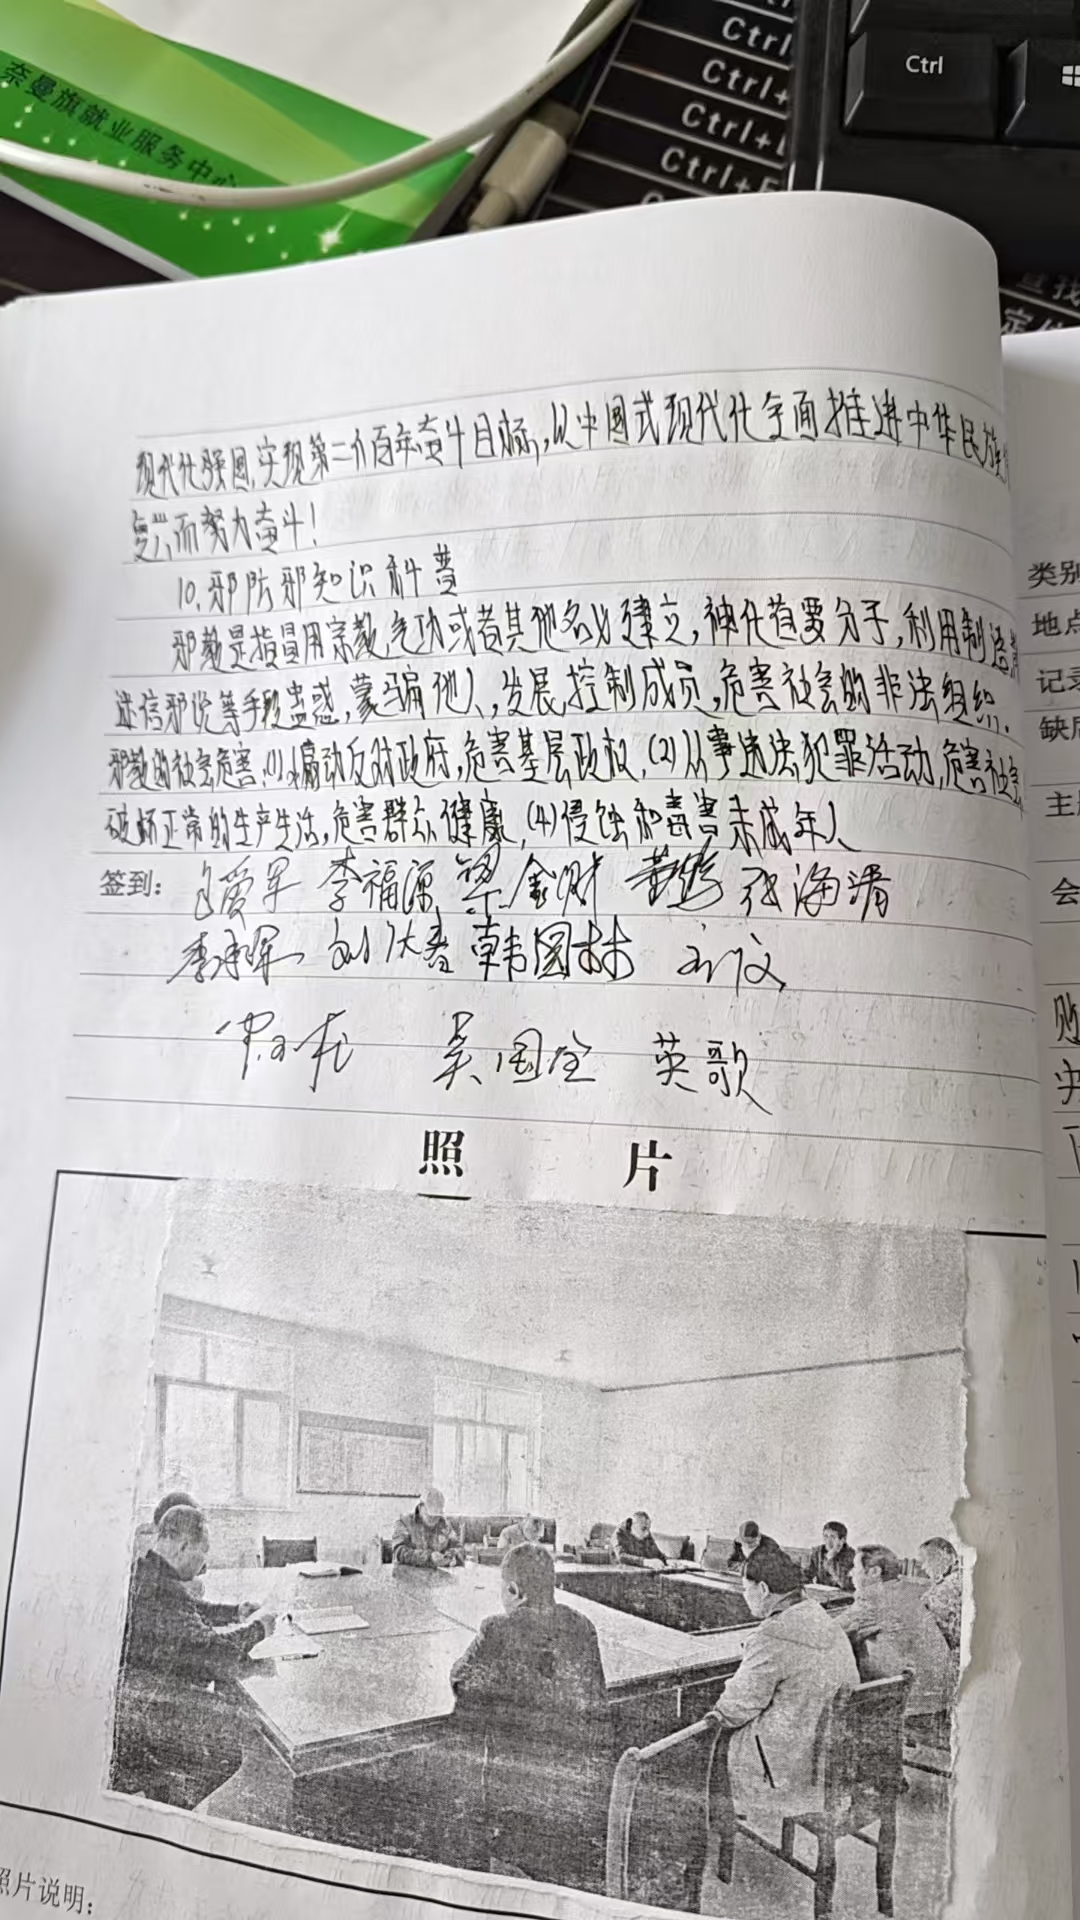 奈曼旗就业服务中心
Ctrl
Ctrl
Ctrl+
Ctrl+
Ctrl+
Ctrl
查找
现代化强国,实现第二个百年奋斗目标,以中国式现代化全面推进中华民族
复兴而努力奋斗!
10.邪防邪知识科普
邪教是指冒用宗教,气功或者其他名义建立,神化首要分子,利用制造
迷信邪说等手段蛊惑,蒙骗他人,发展,控制成员,危害社会的非法组织.
邪教的社会危害:(1)煽动反对政府,危害基层政权,(2)从事违法犯罪活动,危害社会
破坏正常的生产生活,危害群众健康,(4)侵蚀和毒害未成年人
签到: 爱军 李福源 梁金财 张海清
韩国林
吴国全 英歌
照片
照片说明:
类别
地点
记录
缺席
主
会